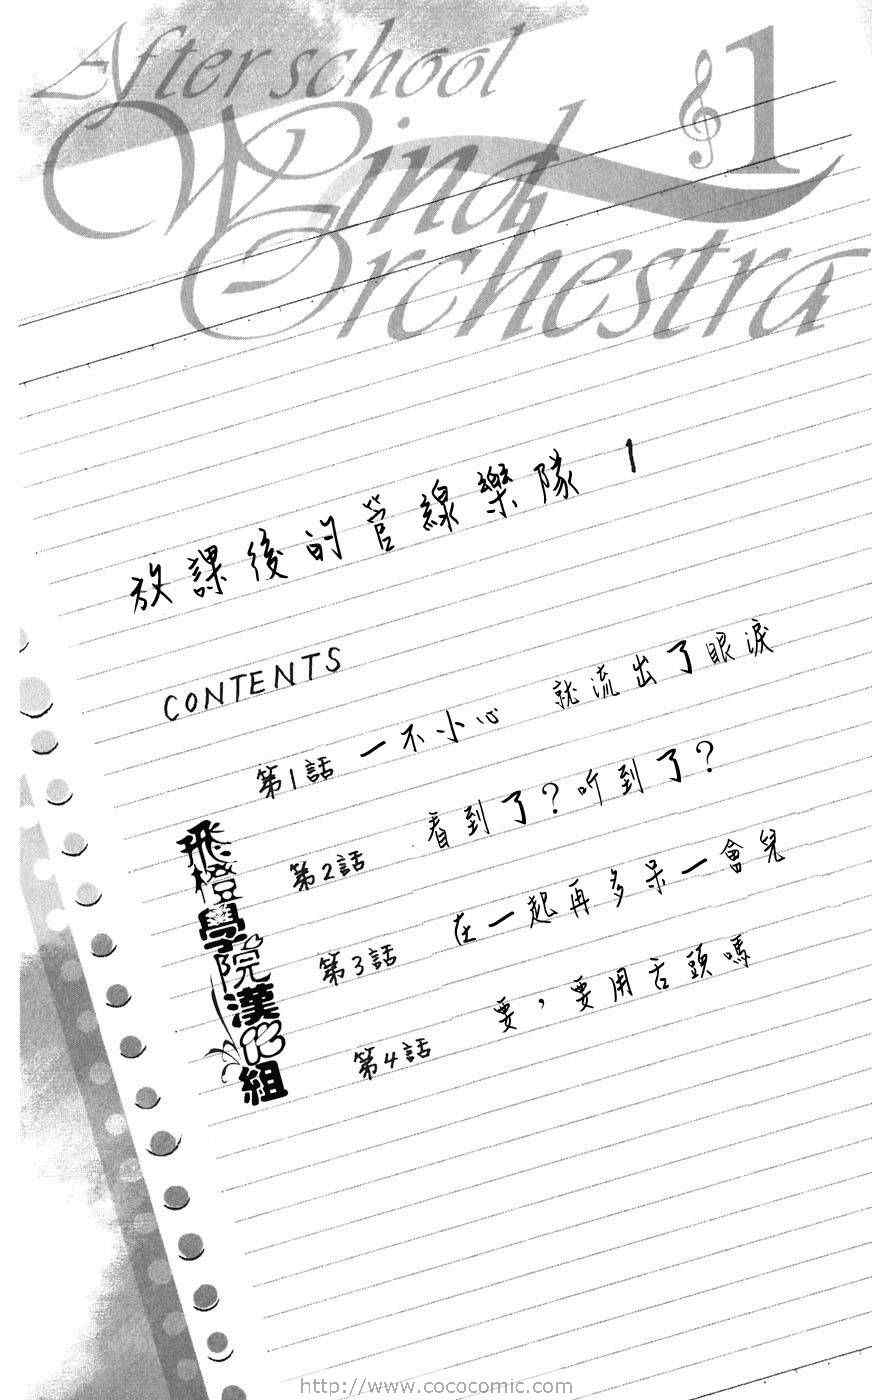 After school
Wind
Orchestra
1
放課後的管線樂隊 1
CONTENTS
第1話 一不小心 就流出了眼淚
第2話 看到了？听到了？
第3話 在一起再多呆一會兒
第4話 要，要用舌頭嗎
飛橙學院漢化組
http://www.cococomic.com